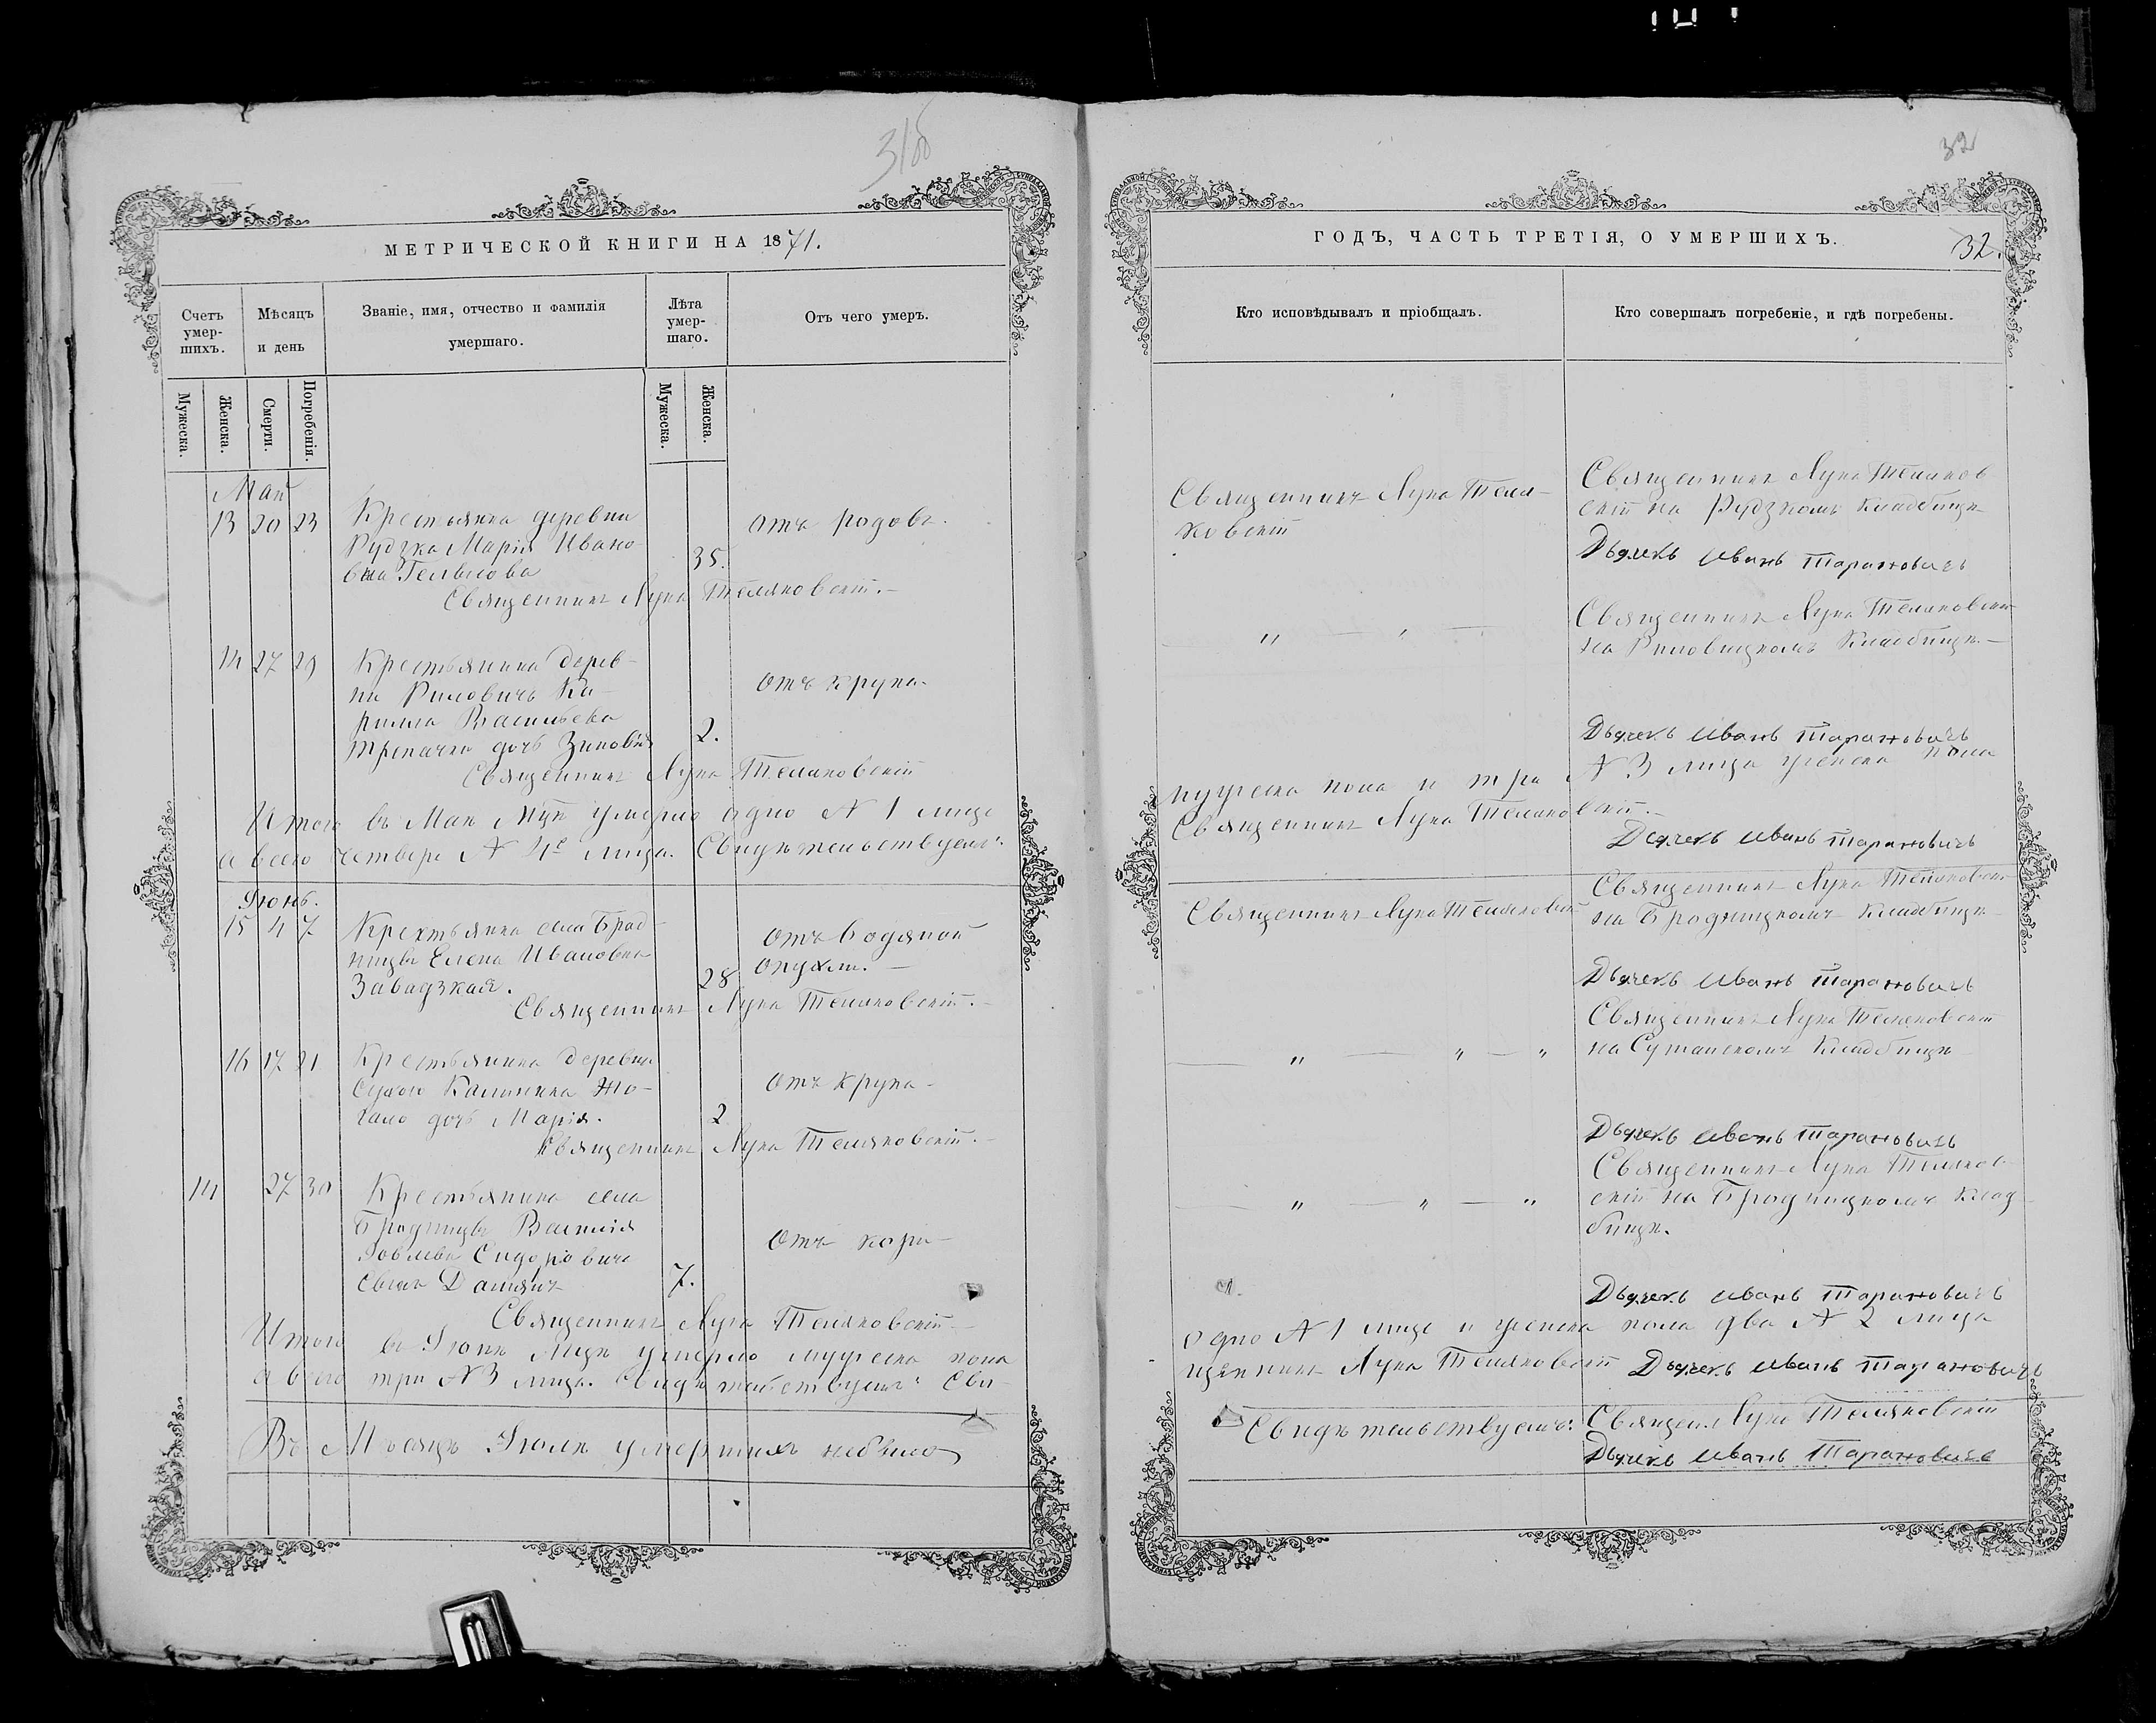 31об
МЕТРИЧЕСКОЙ КНИГИ НА 1871.
Счетъ умер-шихъ.
Мѣсяцъ и день
Званіе, имя, отчество и фамилія умершаго.
Лѣта умер-шаго.
Отъ чего умеръ.
Мужеска.
Женска.
Смерти.
Погребенія.
Мужеска.
Женска.
Май
13 20 23 Крестьянка деревни
Рудзка Марія Ивано-
вна
35.
отъ родовъ.
Священникъ Лука Теляковскій.
14 27 29 Крестьянина дерев-
ни Риловичъ Ки-
рилла Васильева
дочь Зиновія
2.
отъ крупа.
Священникъ Лука Теляковскій
Итого въ Маѣ М-цѣ умерло одно № 1 лице
а всего четверо № 4е лица. Свидѣтельствуемъ:
Іюнь.
15 4 7 Крестьянка села Брод-
ницы Елена Ивановна
Завадзкая.
28
отъ водяной
опухли.
Священникъ Лука Теляковскій.
16 17 21 Крестьянина деревни
Сухого Калиника Жо-
гало дочь Марія.
2
отъ крупа
Священникъ Лука Теляковскій.
14 27 30 Крестьянина села
Бродницы Василія
Яковлева Сидоровича
сынъ Даміянъ
7.
отъ кори
Священникъ Лука Теляковскій.
Итого въ Іюнѣ М-цѣ умерло мужеска пола
а всего три № 3 лица. Свидѣтельствуемъ: Свя-
Въ Мѣсяцѣ Іюлѣ умершихъ небыло
32
ГОДЪ, ЧАСТЬ ТРЕТІЯ, О УМЕРШИХЪ.
32.
Кто исповѣдывалъ и пріобщалъ.
Кто совершалъ погребеніе, и гдѣ погребены.
Священникъ Лука Теля-
ковскій
Священникъ Лука Теляков
скій на Рудзкомъ кладбищѣ
Дьячекъ Иванъ Тарановичъ
" "
Священникъ Лука Теляковскій
на Риловицкомъ Кладбищѣ.
Дьячекъ Иванъ Тарановичъ
мужеска пола и три № 3 лица женска пола
Священникъ Лука Теляковскій.
Дьячекъ Иванъ Тарановичъ
Священникъ Лука Теляковскій
Священникъ Лука Теляковскій
на Бродницкомъ кладбищѣ
Дьячекъ Иванъ Тарановичъ
" " "
Священникъ Лука Теляковскій
на кладбищѣ
Дьячекъ Иванъ Тарановичъ
" " "
Священникъ Лука Теляков-
скій на Бродницкомъ клад-
бищѣ.
Дьячекъ Иванъ Тарановичъ
одно № 1 лице и женска пола два № 2 лица
щенникъ Лука Теляковскій Дьячекъ Иванъ Тарановичъ
Свидѣтельствуемъ: Священ. Лука Теляковскій
Дьячекъ Иванъ Тарановичъ